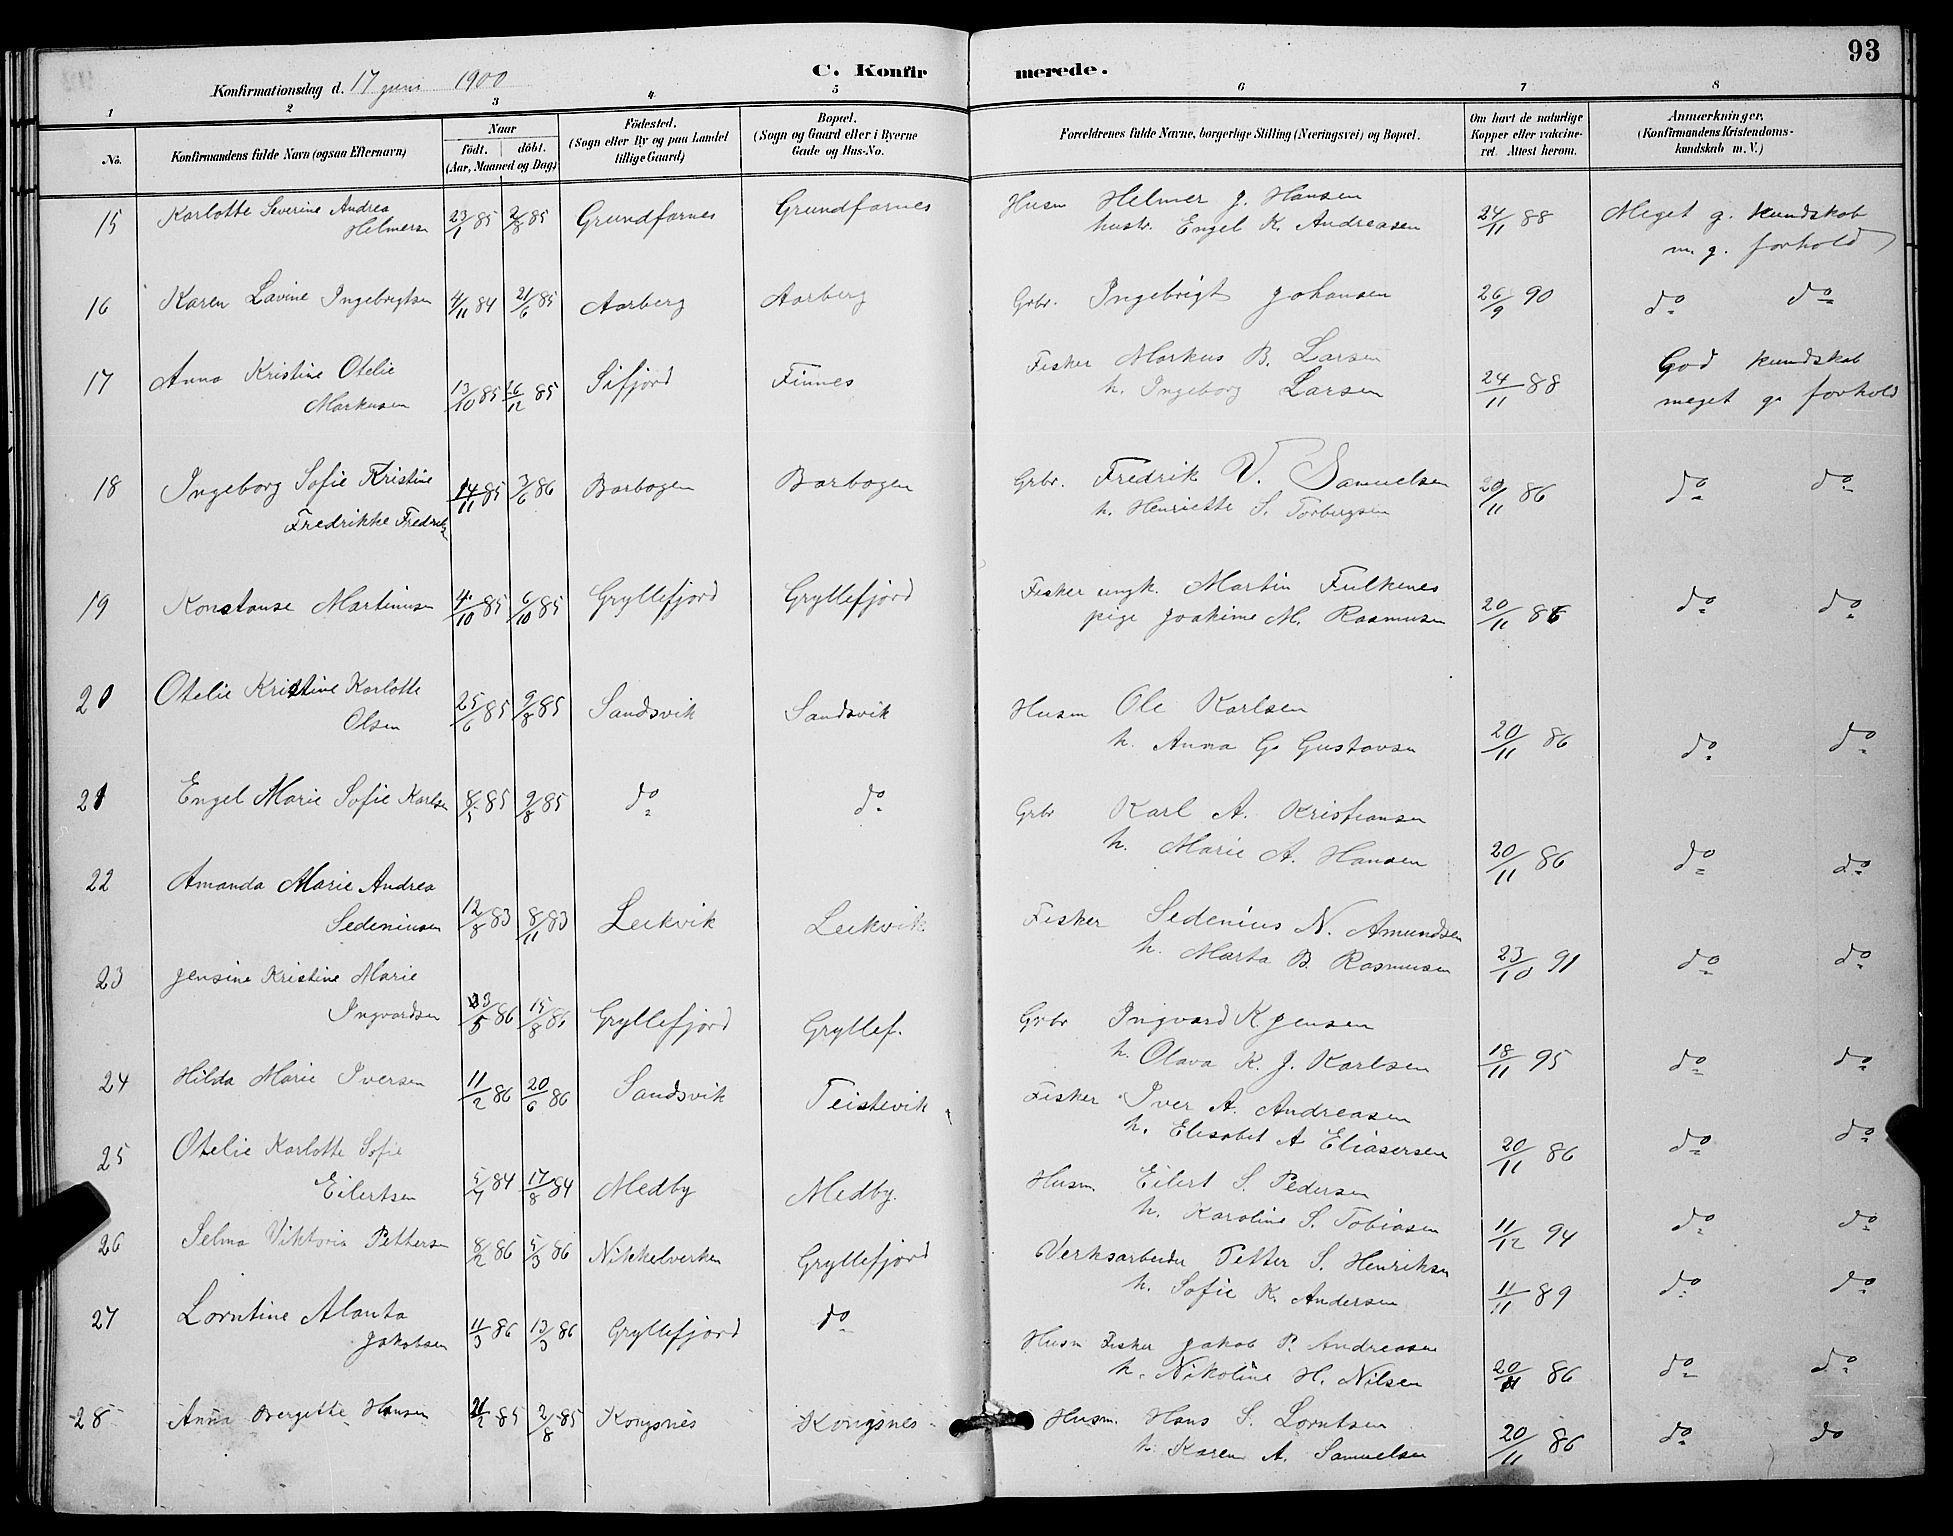 93
Konfirmationsdag d. 17 juni 1900
C. Konfir merede.
1 2 3 4 5 6 7 8
No.
Konfirmandens fulde Navn (ogsaa Efternavn)
Naar
födt. döbt.
(Aar, Maaned og Dag)
Födested.
(Sogn eller By og paa Landet
tillige Gaard)
Bopæl.
(Sogn og Gaard eller i Byerne
Gade og Hus-No.
Forældrenes fulde Navne, borgerlige Stilling (Næringsvei) og Bopæl.
Om havt de naturlige
Kopper eller vakcine-
ret. Attest herom.
Anmærkninger,
(Konfirmandens Kristendoms-
kundskab m. V.)
15 Karlotte Severine Andrea
Helmersen 23/1 85 2/8 85 Grundfarnes Grundfarnes Husm Helmer J. Hansen
hustr. Engel K. Andreasen 24/11 88 Meget g. kundskab
m. g. forhold
16 Karen Lavine Ingebrigtsen 4/11 84 21/6 85 Aarberg Aarberg Grbr. Ingebrigt Johansen 26/9 90 do do
17 Anna Kristine Otelie
Markusen 13/10 85 26/12 85 Sifjord Finnes Fisker Markus B. Larsen
h. Ingeborg Larsen 24/11 88 God kundskab
meget g. forhold
18 Ingeborg Sofie Kristine
Fredrikke Fredriks 14/11 85 3/6 86 Barbogen Barbogen Grbr. Fredrik V. Samuelsen
h. Henriette S. Torbergsen 20/11 86 do do
19 Konstanse Martinusen 4/10 85 6/10 85 Gryllefjord Gryllefjord Fisker ungk. Martin Fulkenes
pige Joakime M. Rasmusen 20/11 86 do do
20 Otelie Kristine Karlotte
Olsen 25/6 85 9/8 85 Sandsvik Sandsvik Husm Ole Karlsen
h. Anna G. Gustavsen 20/11 86 do do
21 Engel Marie Sofie Karlsen 8/5 85 9/8 85 do do Grbr Karl A. Kristiansen
h. Marie A. Hansen 20/11 86 do do
22 Amanda Marie Andrea
Sedeniusen 12/8 83 8/11 83 Leikvik Leikvik Fisker Sedenius N. Amundsen
h. Marta B. Rasmusen 23/10 91 do do
23 Jensine Kristine Marie
Ingvardsen 23/5 86 15/8 86 Gryllefjord Gryllef. Grbr Ingvard K Jensen
h. Olava K. J. Karlsen 18/11 95 do do
24 Hilda Marie Iversen 11/2 86 20/6 86 Sandsvik Teistevik Fisker Iver A. Andreasen
h. Elisabet A Eliasersen 20/11 86 do do
25 Otelie Karlotte Sofie
Eilertsen 5/7 84 17/8 84 Medby Medby. Husm Eilert S. Pedersen
h. Karoline S. Tobiasen 11/12 94 do do
26 Selma Viktoria Pettersen 8/2 86 5/3 86 Nikkelverken Gryllefjord Verksarbeider Petter S. Henriksen
h. Sofie K. Andersen 11/11 89 do do
27 Lorntine Alanta
Jakobsen 11/3 86 13/3 86 Gryllefjord do Husm Fisker Jakob P. Andreasen
h. Nikoline H. Nilsen 20/11 86 do do
28 Anna Bergette Hansen 21/2 85 2/8 85 Kongsnes Kongsnes Husm. Hans S. Lorntsen
h. Karen A. Samuelsen 20/11 86 do do